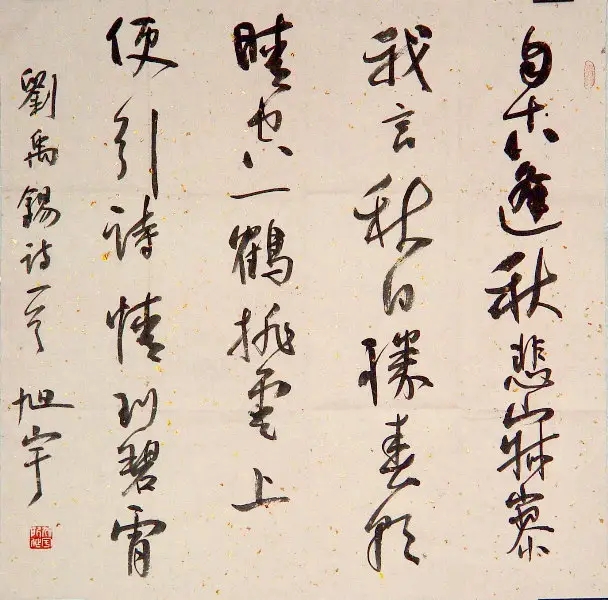 自古逢秋悲寂寥
我言秋日勝春朝
晴空一鶴排雲上
便引詩情到碧霄
劉禹錫詩一首 旭宇